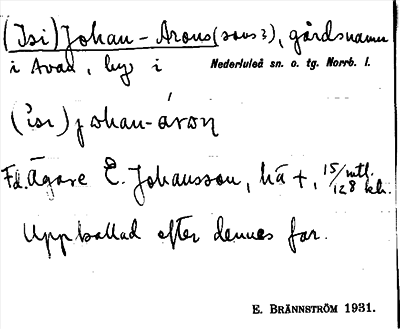 (Isi) Johan-Arons (sons?), gårdsnamn
i Avan, by i Nederluleå sn. o. tg. Norrb. l.
(ìsi) johan-áron
Fd. ägare E. Johansson, hä +, 15/128 mtl.
Uppkallad efter dennes far.
E. BRÄNNSTRÖM 1931.